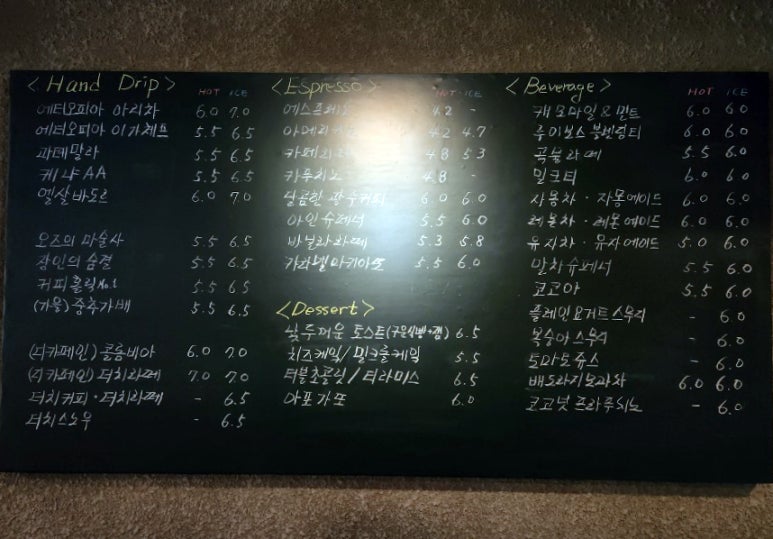 < Hand Drip >
HOT ICE
에티오피아 아리차 6.0 7.0
에티오피아 이가체프 5.5 6.5
과테말라 5.5 6.5
케냐AA 5.5 6.5
엘살바도르 6.0 7.0
오즈의 마술사 5.5 6.5
장인의 숨결 5.5 6.5
커피홀릭No.1 5.5 6.5
(가을)중추가배 5.5 6.5
(디카페인)콜롬비아 6.0 7.0
(디카페인)더치라떼 7.0 7.0
더치커피·더치라떼 - 6.5
더치스노우 - 6.5
<Espresso>
HOT ICE
에스프레소 4.2 -
아메리카노 4.2 4.7
카페라떼 4.8 5.3
카푸치노 4.8 -
달콤한 광수커피 6.0 6.0
아인슈페너 5.5 6.0
바닐라라떼 5.3 5.8
카라멜마키아또 5.5 6.0
<Dessert>
토스트(구운식빵+잼) 6.5
치즈케잌/밀크롤케잌 5.5
더블초콜릿/티라미스 6.5
아포가또 6.0
<Beverage>
HOT ICE
캐모마일&민트 6.0 6.0
루이보스 블렌딩티 6.0 6.0
곡물라떼 5.5 6.0
밀크티 6.0 6.0
자몽차·자몽에이드 6.0 6.0
레몬차·레몬에이드 6.0 6.0
유자차·유자에이드 5.0 6.0
말차슈페너 5.5 6.0
코코아 5.5 6.0
플레인요거트스무디 - 6.0
복숭아스무디 - 6.0
토마토쥬스 - 6.0
배도라지모과차 6.0 6.0
코코넛프라푸치노 - 6.0